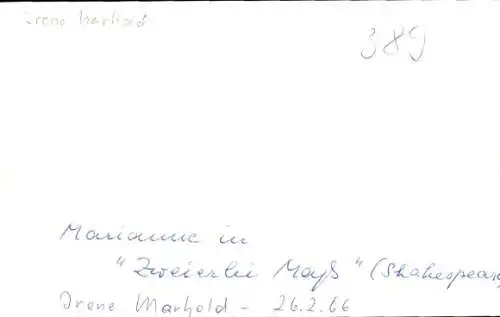 Irene Marhold
389
Marianne in
"Zweierlei Mayß" (Shakespeare
Irene Marhold - 26.2.66